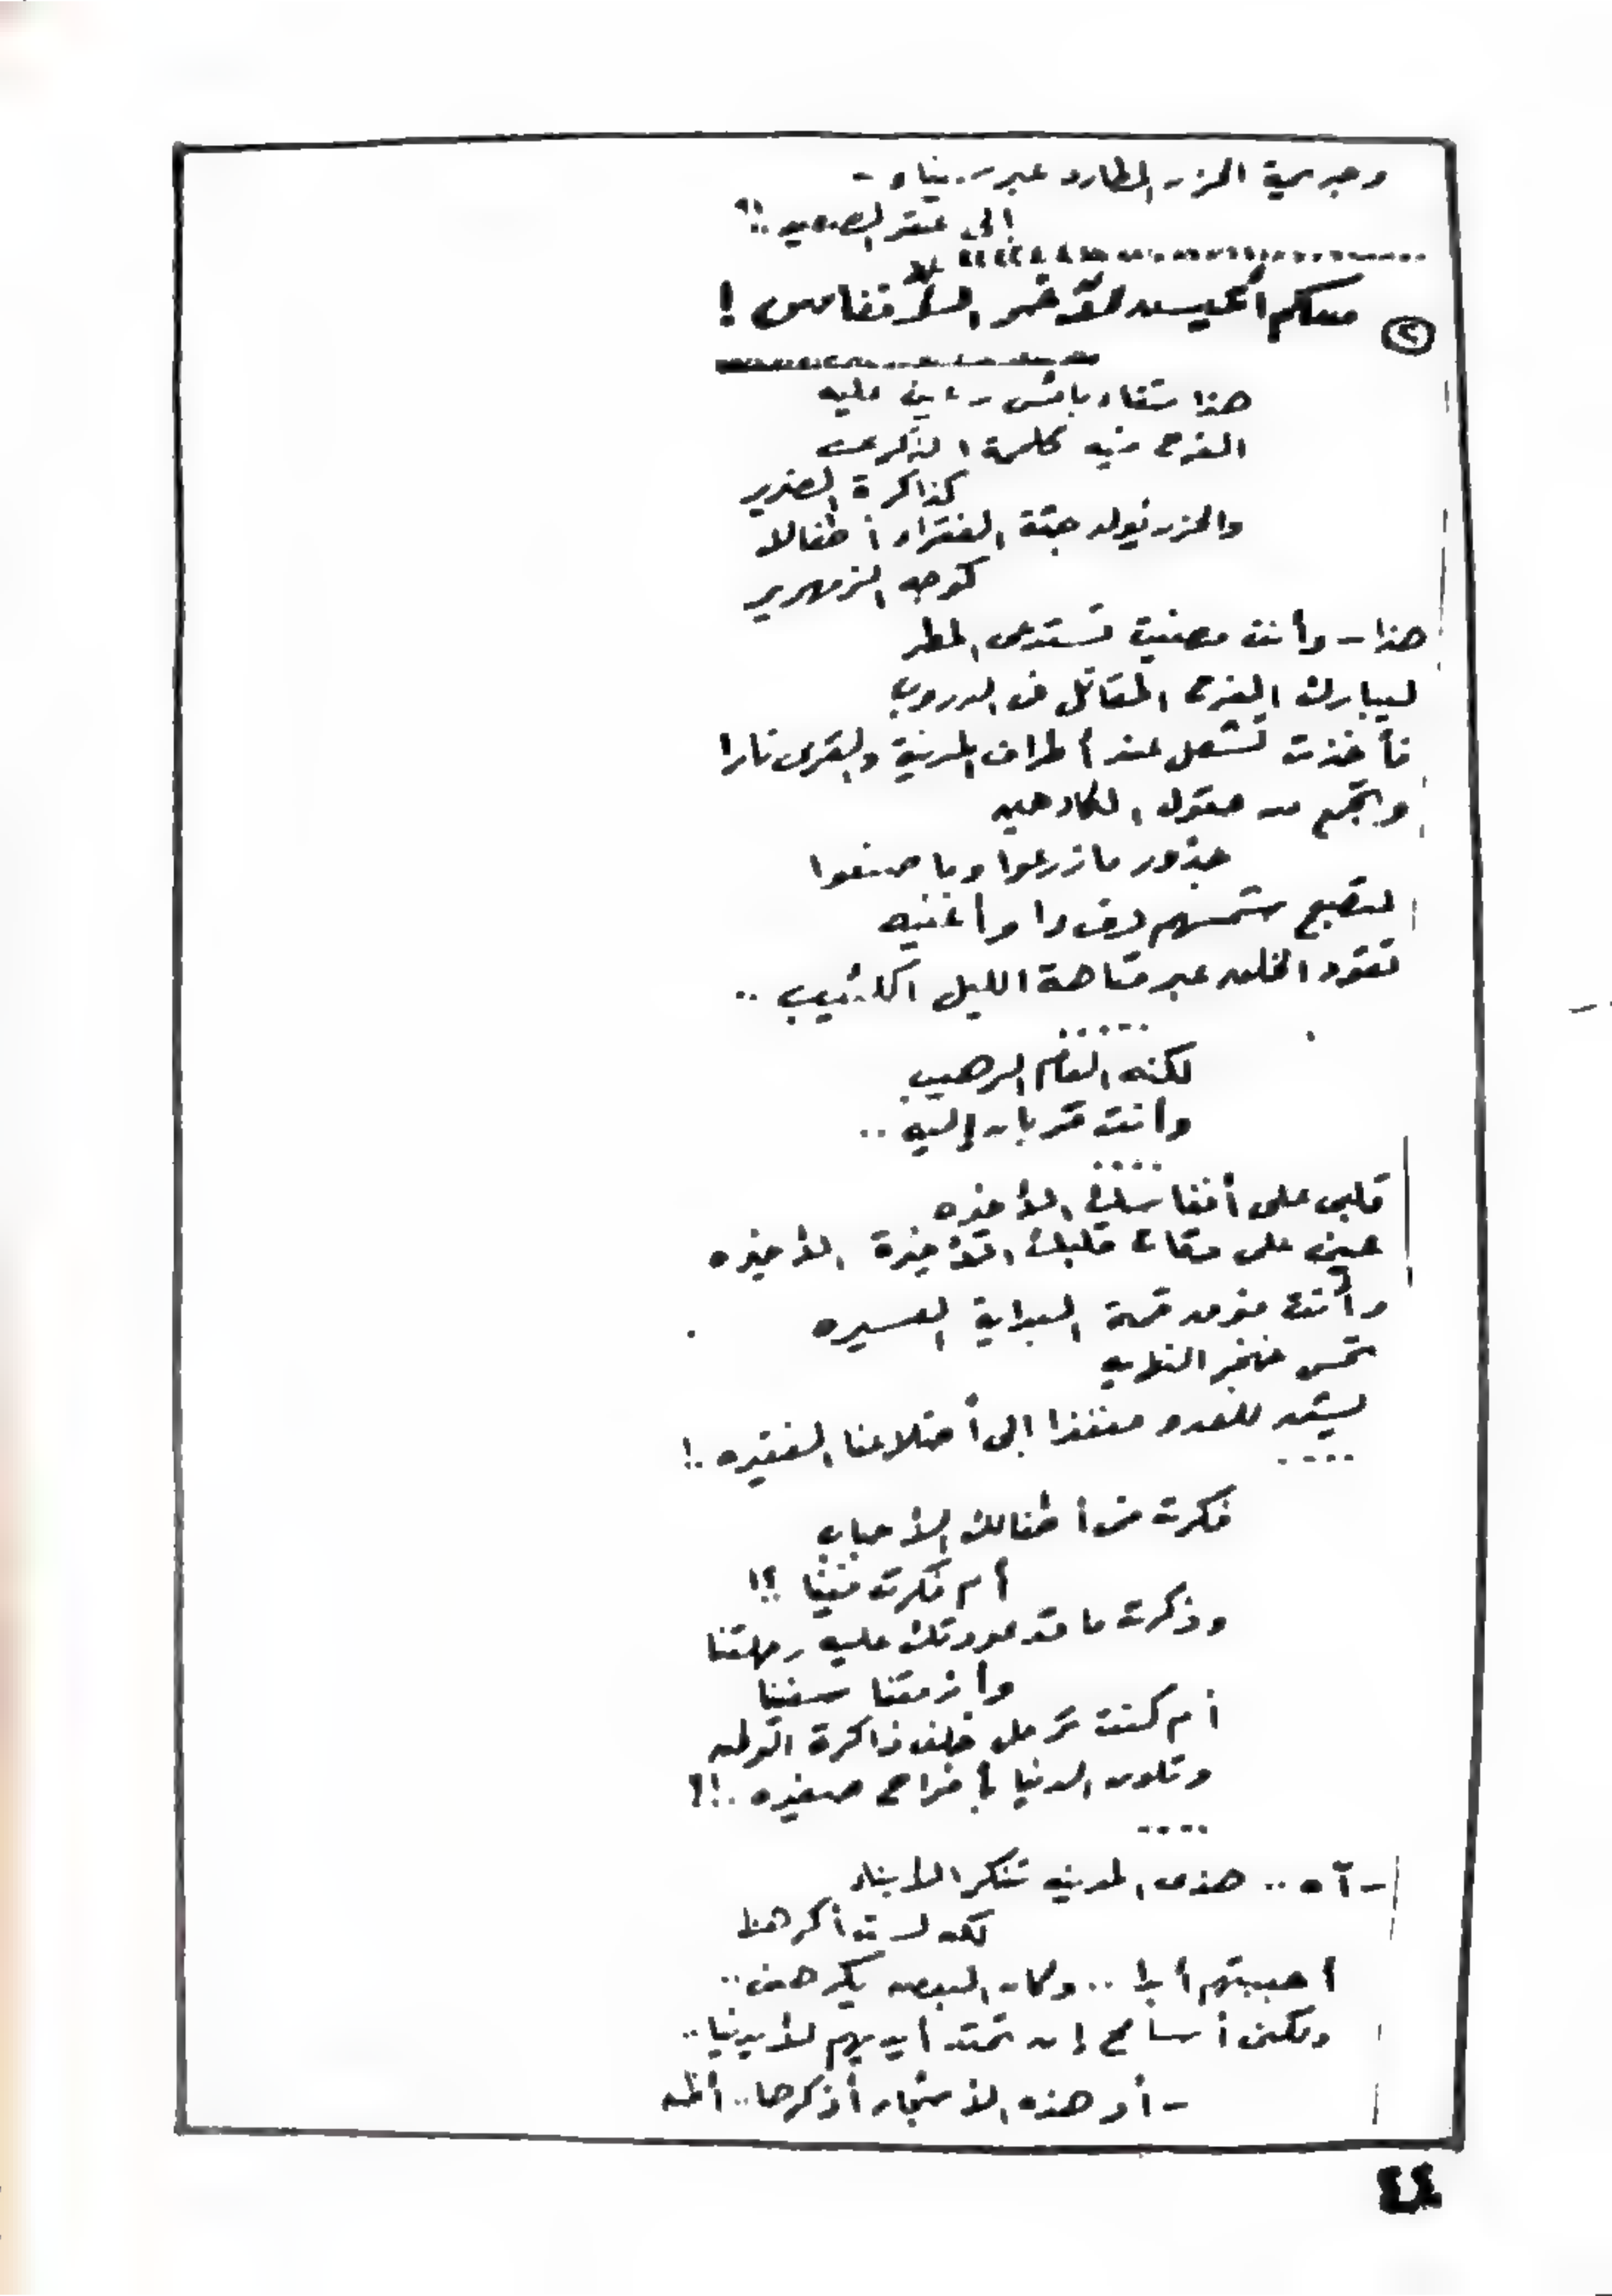 وجريمة الحزن المطارد عبر سيناء -
إلى فقر الصعيد .!؟
معكم أعيش لآخر الأنفاس !
هذا شقاء عليه
الفرح فيه كلمة الذكرى
كذاكرة الضرير
والحزن يولد جثة الفقراء أطفالا
كوجه الزمهرير
هذا - وأنت مغنيٌ تستدعى المطر
ليبارك الفرح المقاتل فى الدروب
فأخذت تشعل عند أطراف المدينة والقرى نارا
وتجمع من حقول الكادحين
جذور ما زرعوا وما صنعوا
لتصبح شمسهم وأغنيه
تقود الخلق عبر متاهة الليل الكئيب ..
.....
لكنه العام الرهيب
وأنت قربان إليه ..
....
قلبى على أنفاسك الأخيره
عينى على دقات قلبك الأخيرة الأخيره
وأنت فوق قمة البداية العسيره
تحس خنجر
ليشد للعدو منفذا إلى أضلاعنا الفقيره .!
....
فكرت فى أطفالك الأحباب
أم فكرت فينا ؟!
وذكرت ما قد عودتك عليه رحلتنا
وأزمتنا سنينا
أم كنت ترحل خلف ذاكرة الوطن
وتلون الدنيا بأفراح صغيره .!؟
....
- آه .. هذى المدينه تنكر الأبناء
لكن لست أكرهها
أحببتهم أبدا .. وكان البعض يكرهنى ..
ولكنى أسامح إن تمتد أيديهم لأيدينا ..
- أو هذه الأشجار أذكرها ..
٤٤